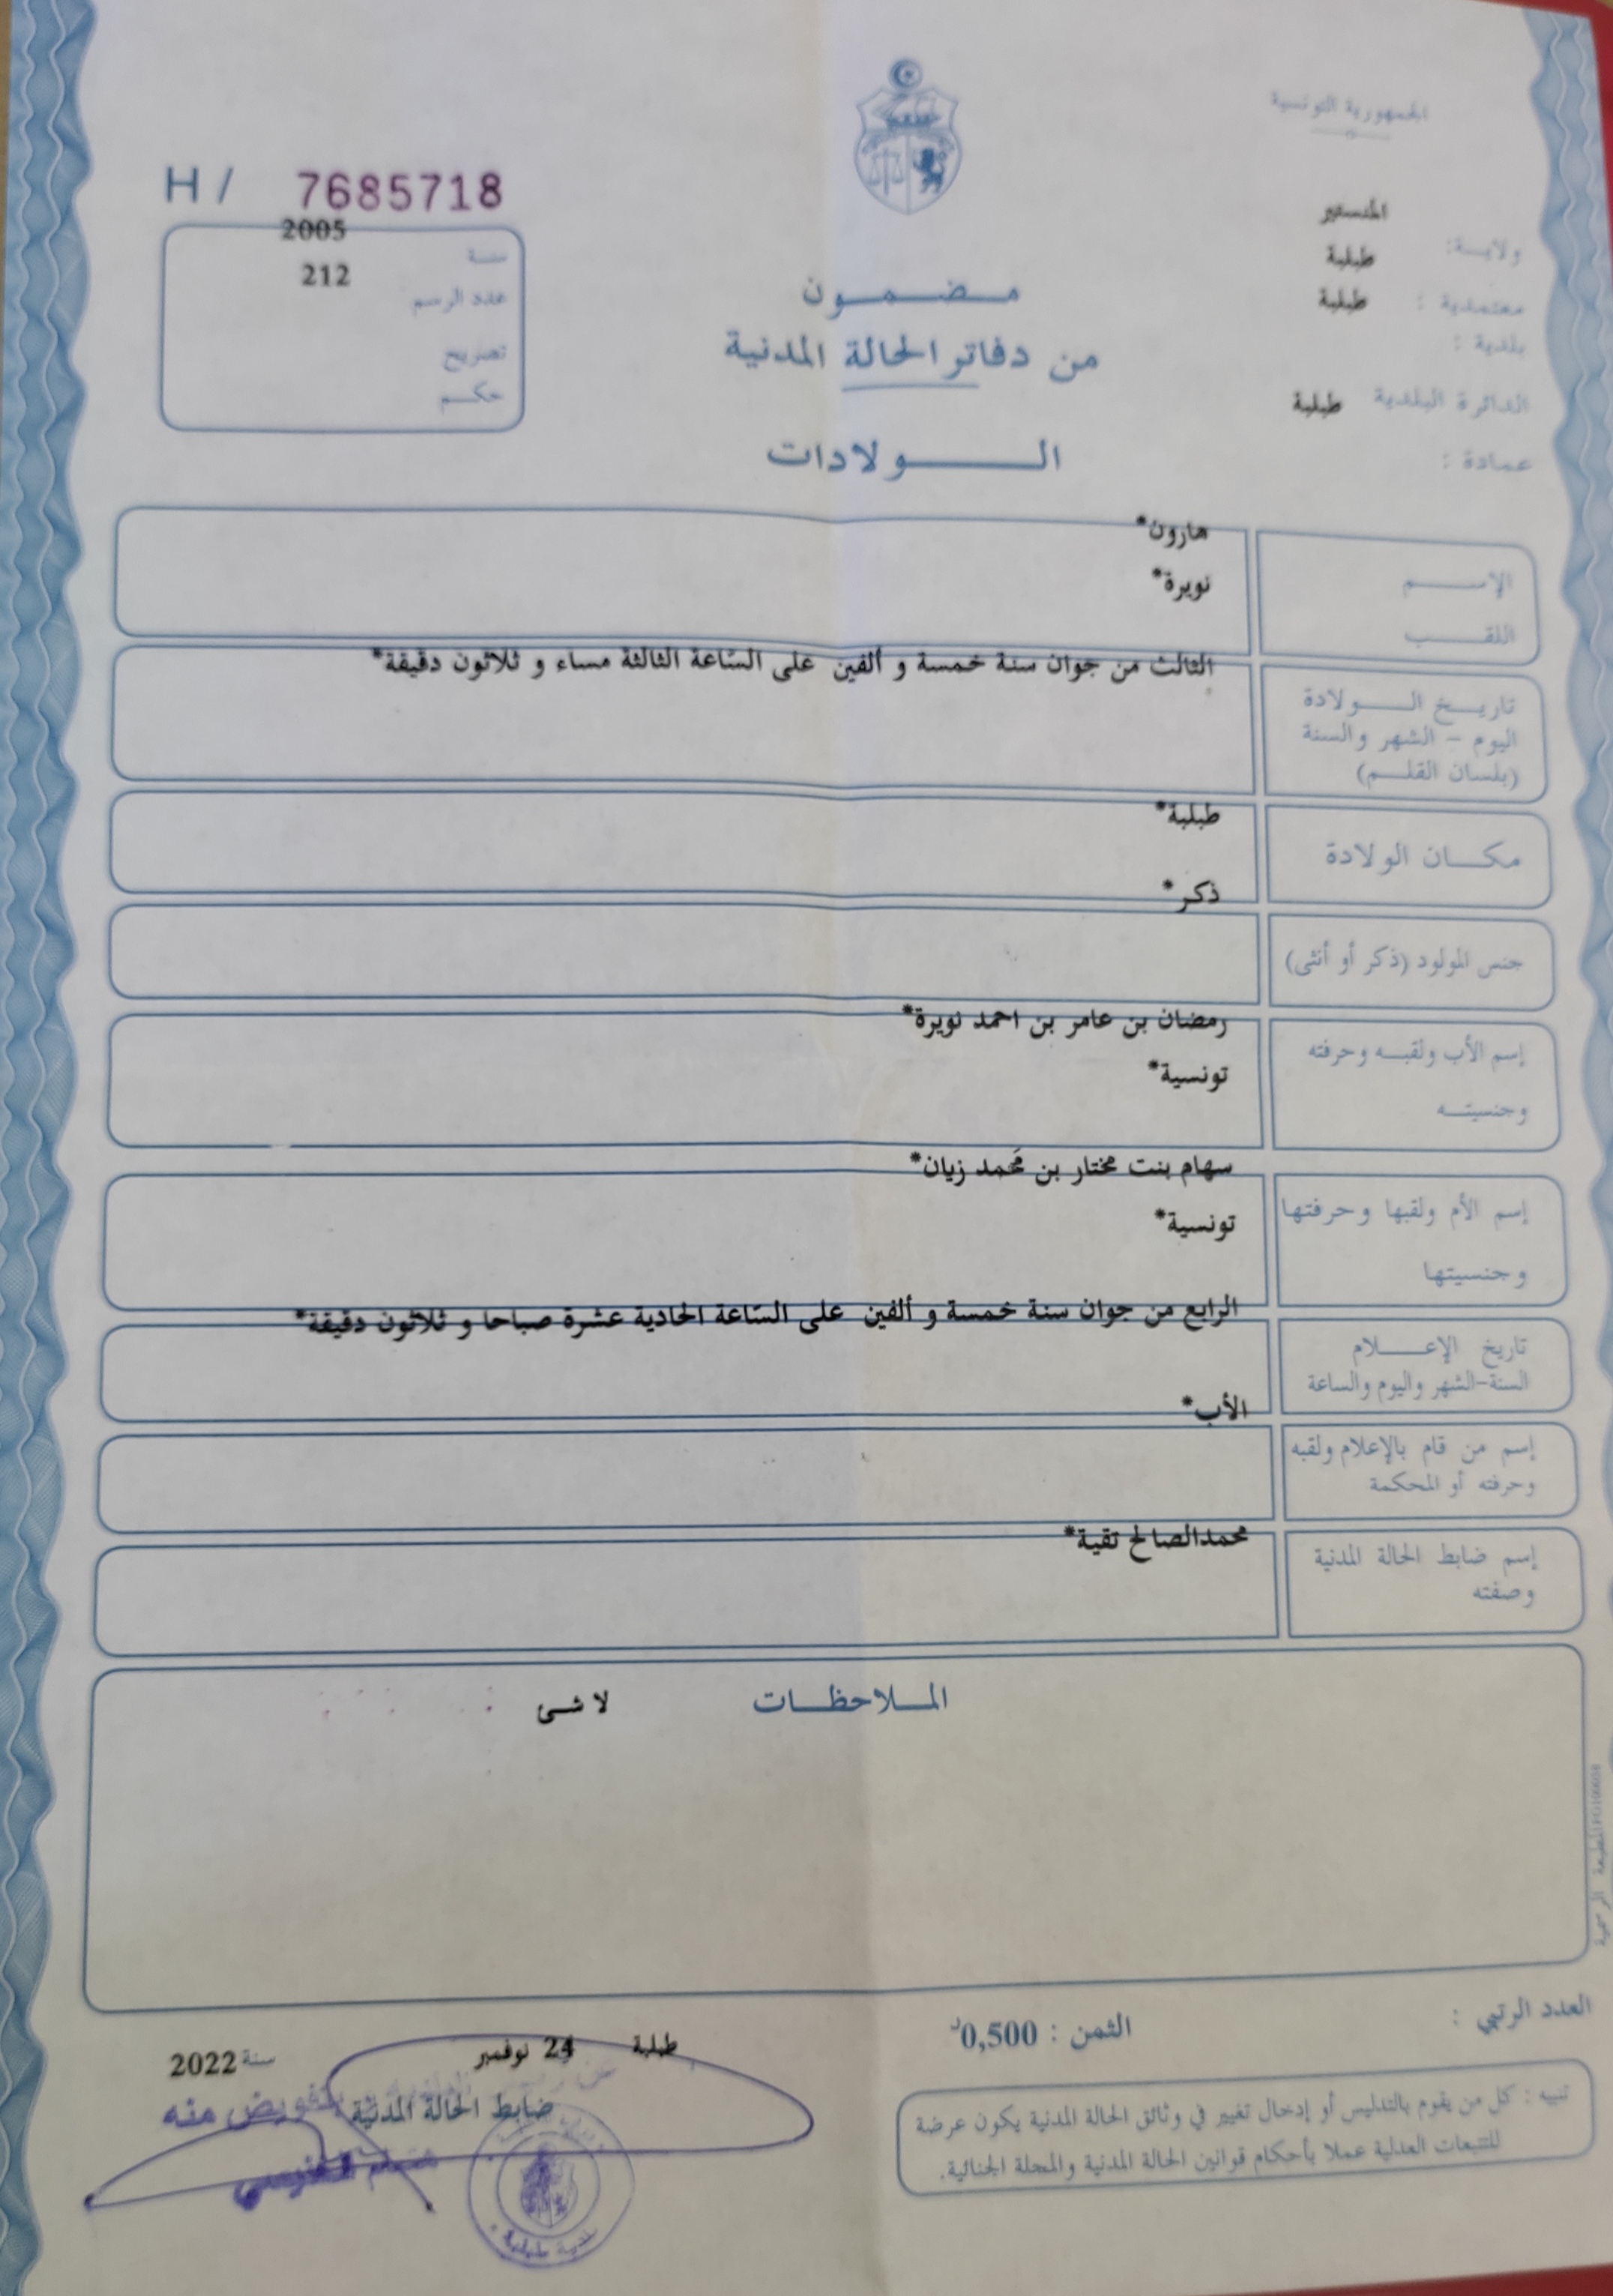 الجمهورية التونسية
H / 7685718
المنستير
ولايـــة:
طبلبة
معتمدية :
طبلبة
بلدية :
الدائرة البلدية طبلبة
عمادة :
2005
سنـة
212
عدد الرسم
تصريح
حكــم
مــضــمــون
من دفاتر الحالة المدنية
الــــولادات
هارون*
الإســــم
نويرة*
اللقــــب
الثالث من جوان سنة خمسة و ألفين على الساعة الثالثة مساء و ثلاثون دقيقة*
تاريــخ الــــولادة
اليوم – الشهر والسنة
(بلسان القلــم)
طبلبة*
مكـــان الولادة
ذكر*
جنس المولود (ذكر أو أنثى)
رمضان بن عامر بن احمد نويرة*
إسم الأب ولقبــه وحرفته
تونسية*
وجنسيتــه
سهام بنت مختار بن مَحمد زيان*
إسم الأم ولقبها وحرفتها
تونسية*
وجنسيتها
الرابع من جوان سنة خمسة و ألفين على الساعة الحادية عشرة صباحا و ثلاثون دقيقة*
تاريخ الإعـــــلام
السنة-الشهر واليوم والساعة
الأب*
إسم من قام بالإعلام ولقبه
وحرفته أو المحكمة
محمدالصالح تقية*
إسم ضابط الحالة المدنية
وصفته
المــلاحظــات لا شىء
المطبعة الرسمية
العدد الرتبي :
الثمن : 0,500د
طبلبة 24 نوفمبر سنة 2022
ضابط الحالة المدنية
بتفويض منه
بلدية طبلبة
تنبيه : كل من يقوم بالتدليس أو إدخال تغيير في وثائق الحالة المدنية يكون عرضة
للتتبعات العدلية عملا بأحكام قوانين الحالة المدنية والمجلة الجنائية.